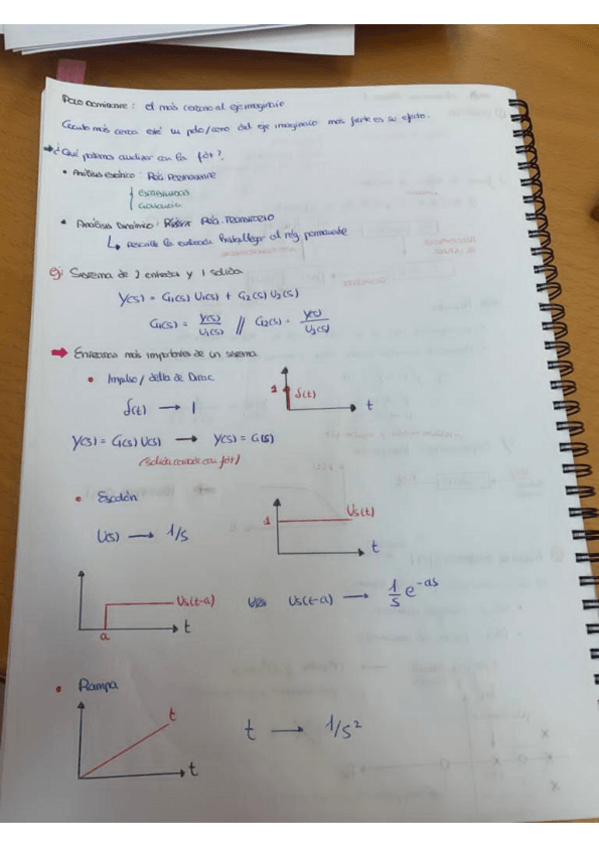 Polo dominante: el más cercano al eje imaginario
Cuanto más cerca esté un polo/cero del eje imaginario más fuerte es su efecto.
→ ¿Qué podemos analizar con la fdt?
• Análisis estático: Rég. Permanente
Estabilidad
Ganancia
• Análisis Dinámico: Rég. Transitorio
↳ hasta llegar al rég. permanente
ej: Sistema de 2 entradas y 1 salida
Y(s) = G1(s) U1(s) + G2(s) U2(s)
G1(s) = Y(s)/U1(s) // G2(s) = Y(s)/U2(s)
→ Entradas más importantes de un sistema
• Impulso / delta de Dirac
1 δ(t) t
δ(t) → 1
Y(s) = G(s) U(s) → Y(s) = G(s)
(salida coincide con fdt)
• Escalón
1 Us(t) t
U(s) → 1/s
Us(t-a) a t
Us(t-a) → 1/s e^-as
• Rampa
t t
t → 1/s²